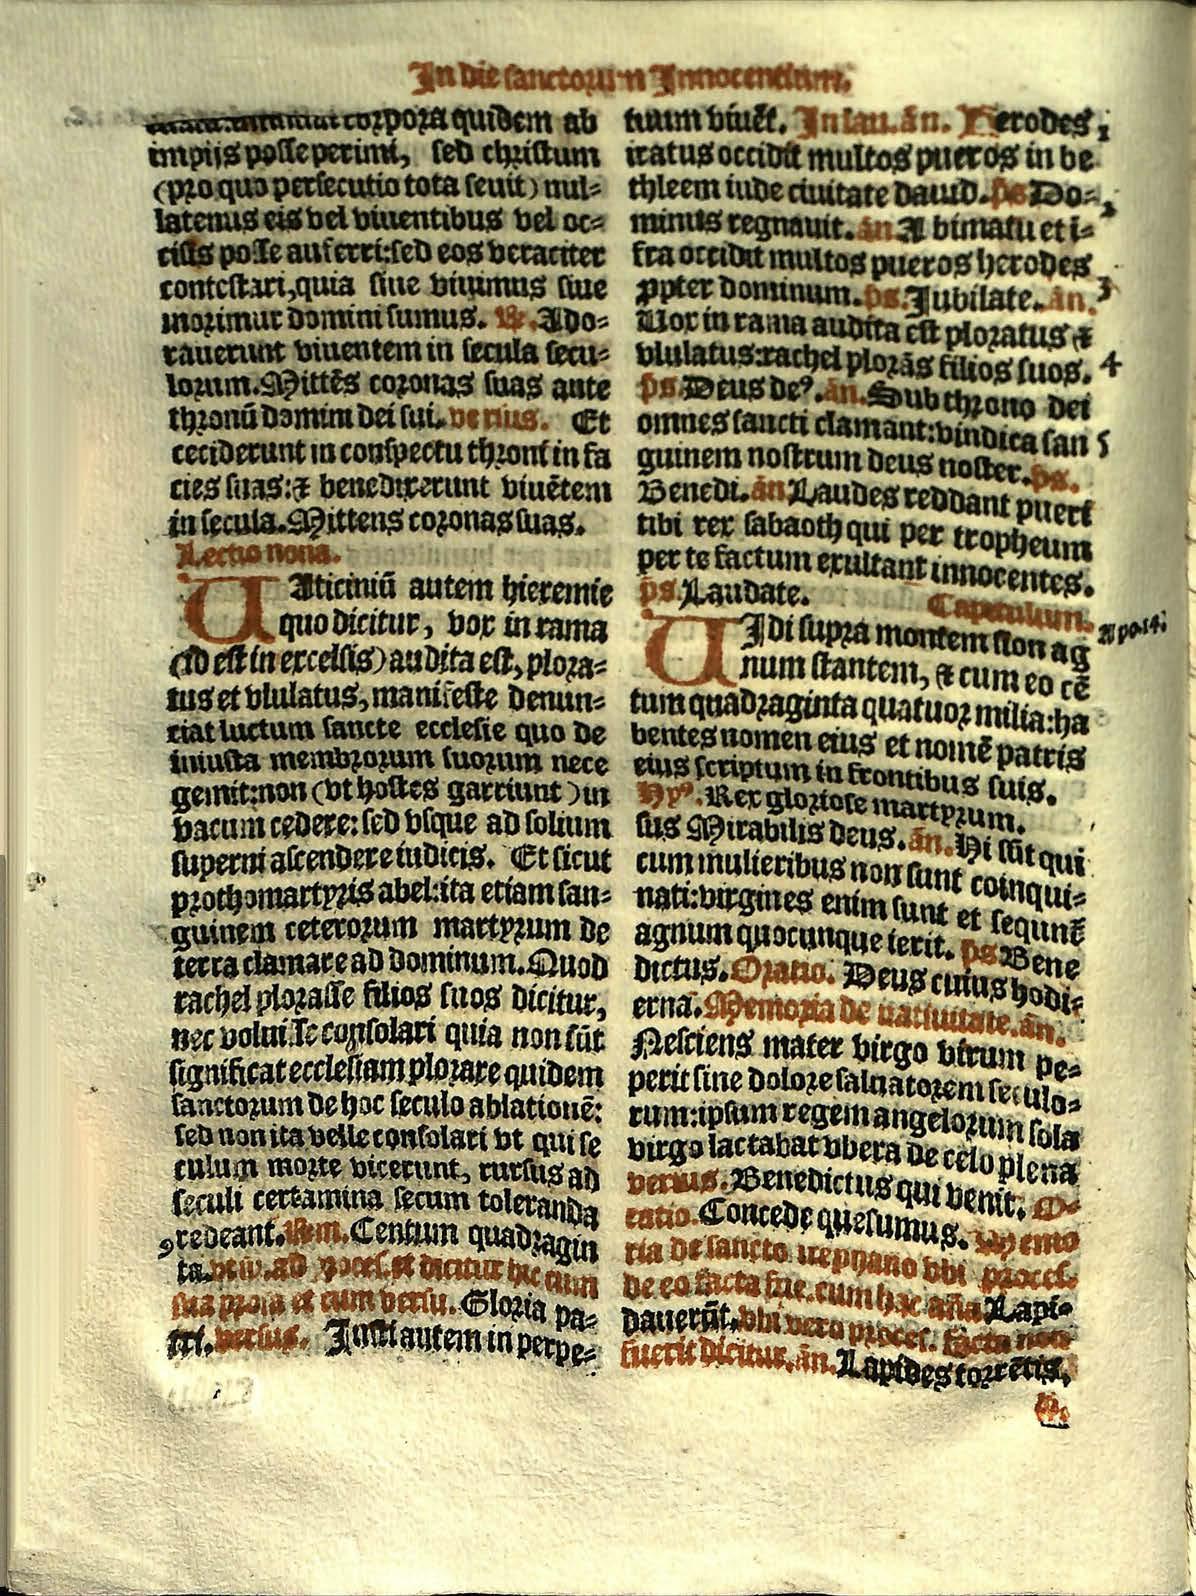 In die sanctorum Innocentium.
corpora quidem ab
impijs posse perimi, sed christum
(pro quo persecutio tota seuit) nul-
latenus eis vel viuentibus vel oc-
cisis posse auferri: sed eos veraciter
contestari, quia siue viuimus siue
morimur domini sumus. ℟. Ado-
rauerunt viuentem in secula secu-
lorum. Mittẽs coronas suas ante
thronũ domini dei sui. versus. Et
ceciderunt in conspectu throni in fa
cies suas: ⁊ benedixerunt viuẽtem
in secula. Mittens coronas suas.
Lectio nona.
UAticiniũ autem hieremie
quo dicitur, vox in rama
(id est in excelsis) audita est, plora-
tus et vlulatus, manifeste denun-
ciat luctum sancte ecclesie quo de
iniusta membrorum suorum nece
gemit: non (vt hostes garriunt) in
vacum cedere: sed vsque ad solium
superni ascendere iudicis. Et sicut
prothomartyris abel: ita etiam san-
guinem ceterorum martyrum de
terra clamare ad dominum. Quod
rachel plorasse filios suos dicitur,
nec voluisse consolari quia non sũt
significat ecclesiam plorare quidem
sanctorum de hoc seculo ablationẽ:
sed non ita velle consolari vt qui se
culum morte vicerunt, rursus ad
seculi certamina secum toleranda
redeant. Centum quadragin
ta. ad proces. et dicitur hic cum
sua prosa et cum versu. Gloria pa-
tri. versus. Justi autem in perpe-
tuum viuẽt. In lau. ãn. Herodes 1
iratus occidit multos pueros in be
thleem iude ciuitate dauid. ps Do- 2
minus regnauit. ãn A bimatu et i-
fra occidit multos pueros herodes
ꝓpter dominum. ps. Jubilate. ãn. 3
Uox in rama audita est ploratus ⁊
vlulatus: rachel plorãs filios suos. 4
ps. Deus de⁹. ãn. Sub throno dei
omnes sancti clamant: vindica san 5
guinem nostrum deus noster. ps.
Benedi. ãn Laudes reddant pueri
tibi rex sabaoth qui per tropheum
per te factum exultant innocentes.
ps. Laudate. Capitulum.
UIdi supra montem sion ag Apo. 14.
num stantem, ⁊ cum eo cẽ
tum quadraginta quatuor milia: ha
bentes nomen eius et nomẽ patris
eius scriptum in frontibus suis.
Hy⁹. Rex gloriose martyrum.
sus Mirabilis deus. ãn. Hi sũt qui
cum mulieribus non sunt coinqui-
nati: virgines enim sunt et sequnẽ
agnum quocunque ierit. ps Bene
dictus. Oratio. Deus cuius hodi-
erna. Memoria de natiuitate. ãn.
Nesciens mater virgo virum pe-
perit sine dolore saluatorem seculo-
rum: ipsum regem angelorum sola
virgo lactabat vbera de celo plena
versus. Benedictus qui venit. O-
ratio. Concede quesumus. Memo
ria de sancto stephano vbi proces.
de eo facta fue. cum hac aña Lapi-
dauerũt. vbi vero proces. facta non
fuerit dicitur. ãn. Lapides torrẽtis.